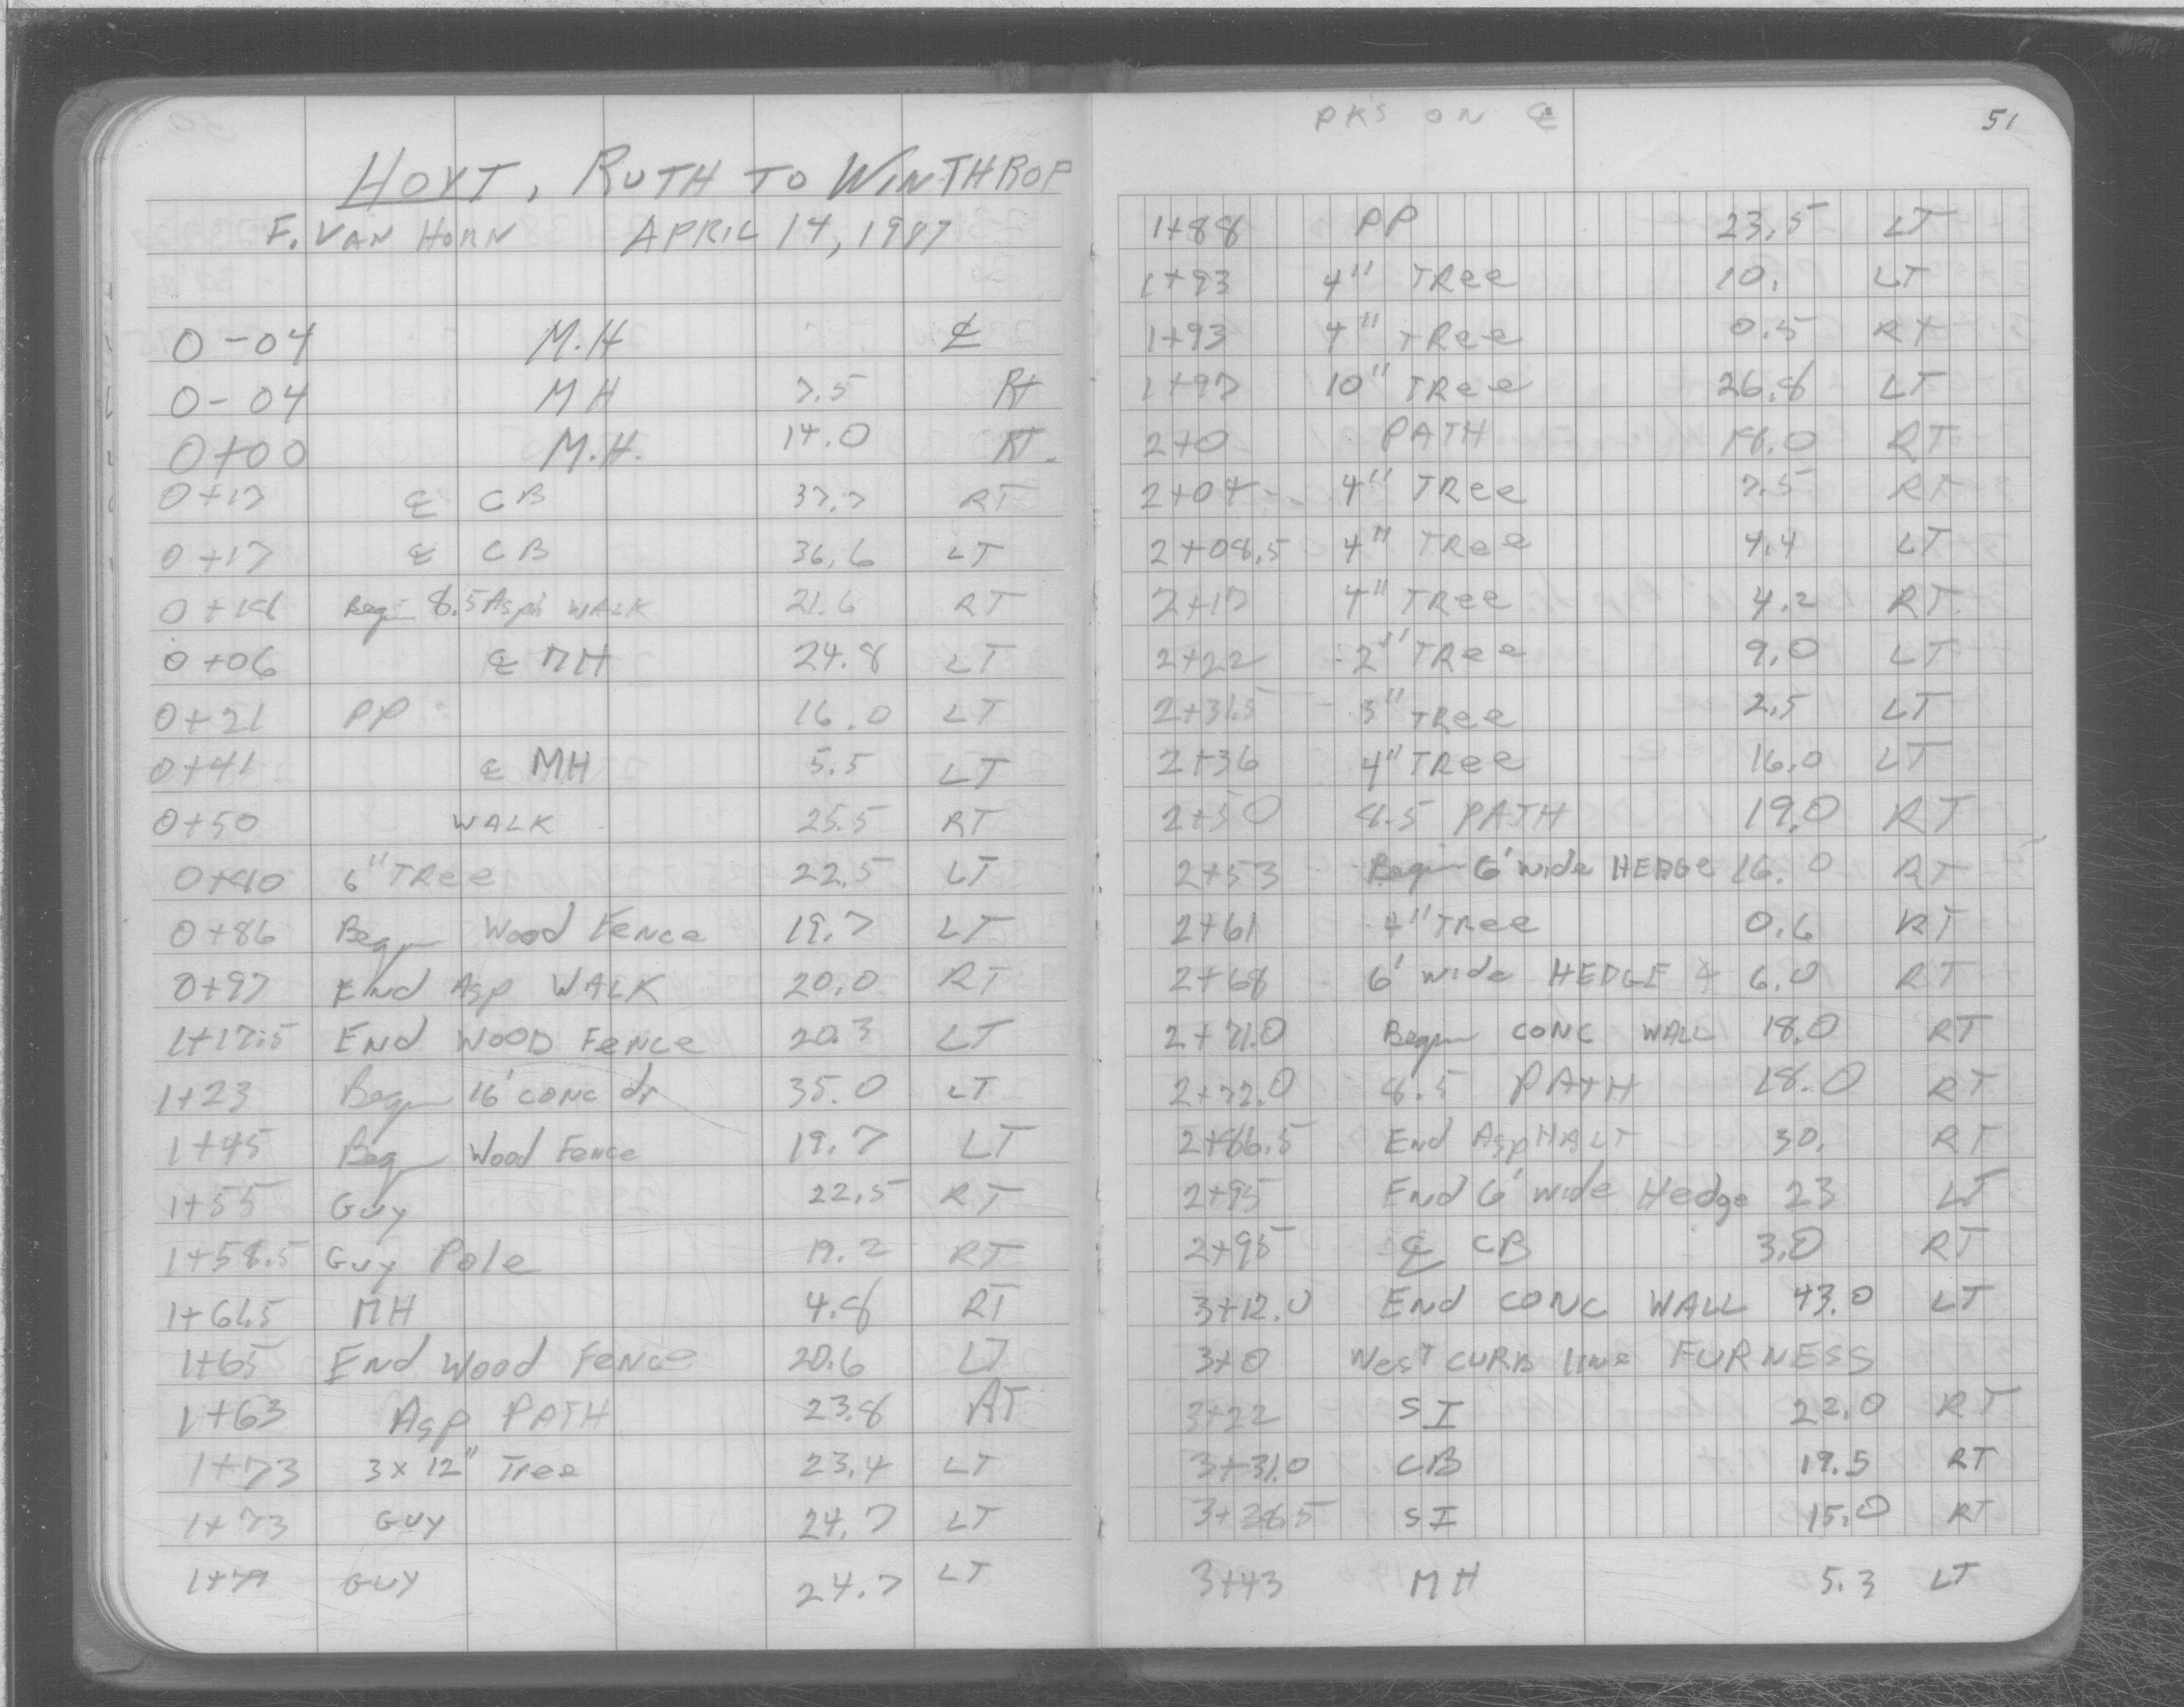 HOYT, RUTH TO WINTHROP
F. VAN HORN APRIL 14, 1987
0-04 M.H ℄
0-04 MH 7.5 Rt
0+00 M.H. 14.0 RT.
0+17 ℄ CB 37.7 RT
0+17 ℄ CB 36.6 LT
0+18 Begin 8.5 Asph WALK 21.6 RT
0+06 ℄ MH 24.8 LT
0+21 PP 16.0 LT
0+41 ℄ MH 5.5 LT
0+50 WALK 25.5 RT
6" TRee 22.5 LT
0+86 Begin Wood Fence 19.7 LT
0+97 End Asp WALK 20.0 RT
1+17.5 End WOOD Fence 20.3 LT
1+23 Begin 16' conc dr 35.0 LT
1+45 Begin Wood Fence 19.7 LT
1+55 Guy 22.5 RT
1+58.5 Guy Pole 19.2 RT
1+61.5 MH 4.8 RT
1+65 End Wood Fence 20.6 LT
1+63 Asp PATH 23.8 RT
1+73 3 x 12" Tree 23.4 LT
1+73 GUY 24.7 LT
1+79 GUY 24.7 LT
PK'S ON ℄
51
1+88 PP 23.5 LT
1+93 4" TRee 10. LT
1+93 4" TRee 0.5 RT
1+97 10" TRee 26.8 LT
2+0 PATH 18.0 RT
2+04 4" TRee 7.5 RT
2+08.5 4" TRee 4.4 LT
2+17 4" TRee 4.2 RT
2+22 2" TRee 9.0 LT
2+31.5 3" TRee 2.5 LT
2+36 4" TRee 16.0 LT
2+50 8.5 PATH 19.0 RT
2+53 Begin 6' wide HEDGe 16.0 RT
2+61 4" TRee 0.6 RT
2+68 6' wide HEDGE 6.0 RT
2+71.0 Begin CONC WALL 18.0 RT
2+72.0 8.5 PATH 18.0 RT
2+86.5 End AspHALT 30. RT
2+95 End 6' wide Hedge 23 LT
2+95 ℄ CB 3.0 RT
3+12.0 End CONC WALL 43.0 LT
3+0 West CURB line FURNESS
3+22 SI 22.0 RT
3+31.0 CB 19.5 RT
3+38.5 SI 15.0 RT
3+43 MH 5.3 LT